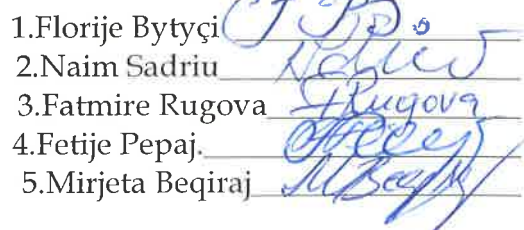 1.Florije Bytyçi
2.Naim Sadriu
3.Fatmire Rugova FRugova
4.Fetije Pepaj.
5.Mirjeta Beqiraj